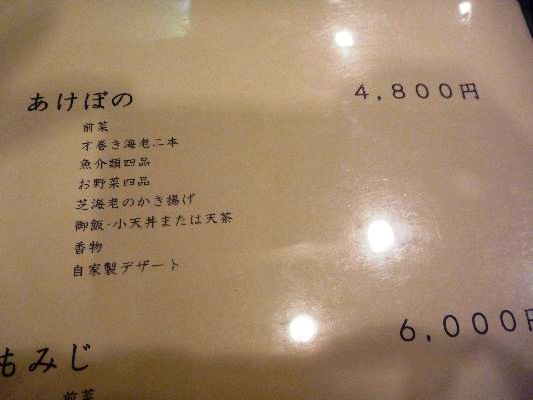 あけぼの 4,800円
前菜
才巻き海老二本
魚介類四品
お野菜四品
芝海老のかき揚げ
御飯・小天丼または天茶
香物
自家製デザート
もみじ 6,000円
前菜